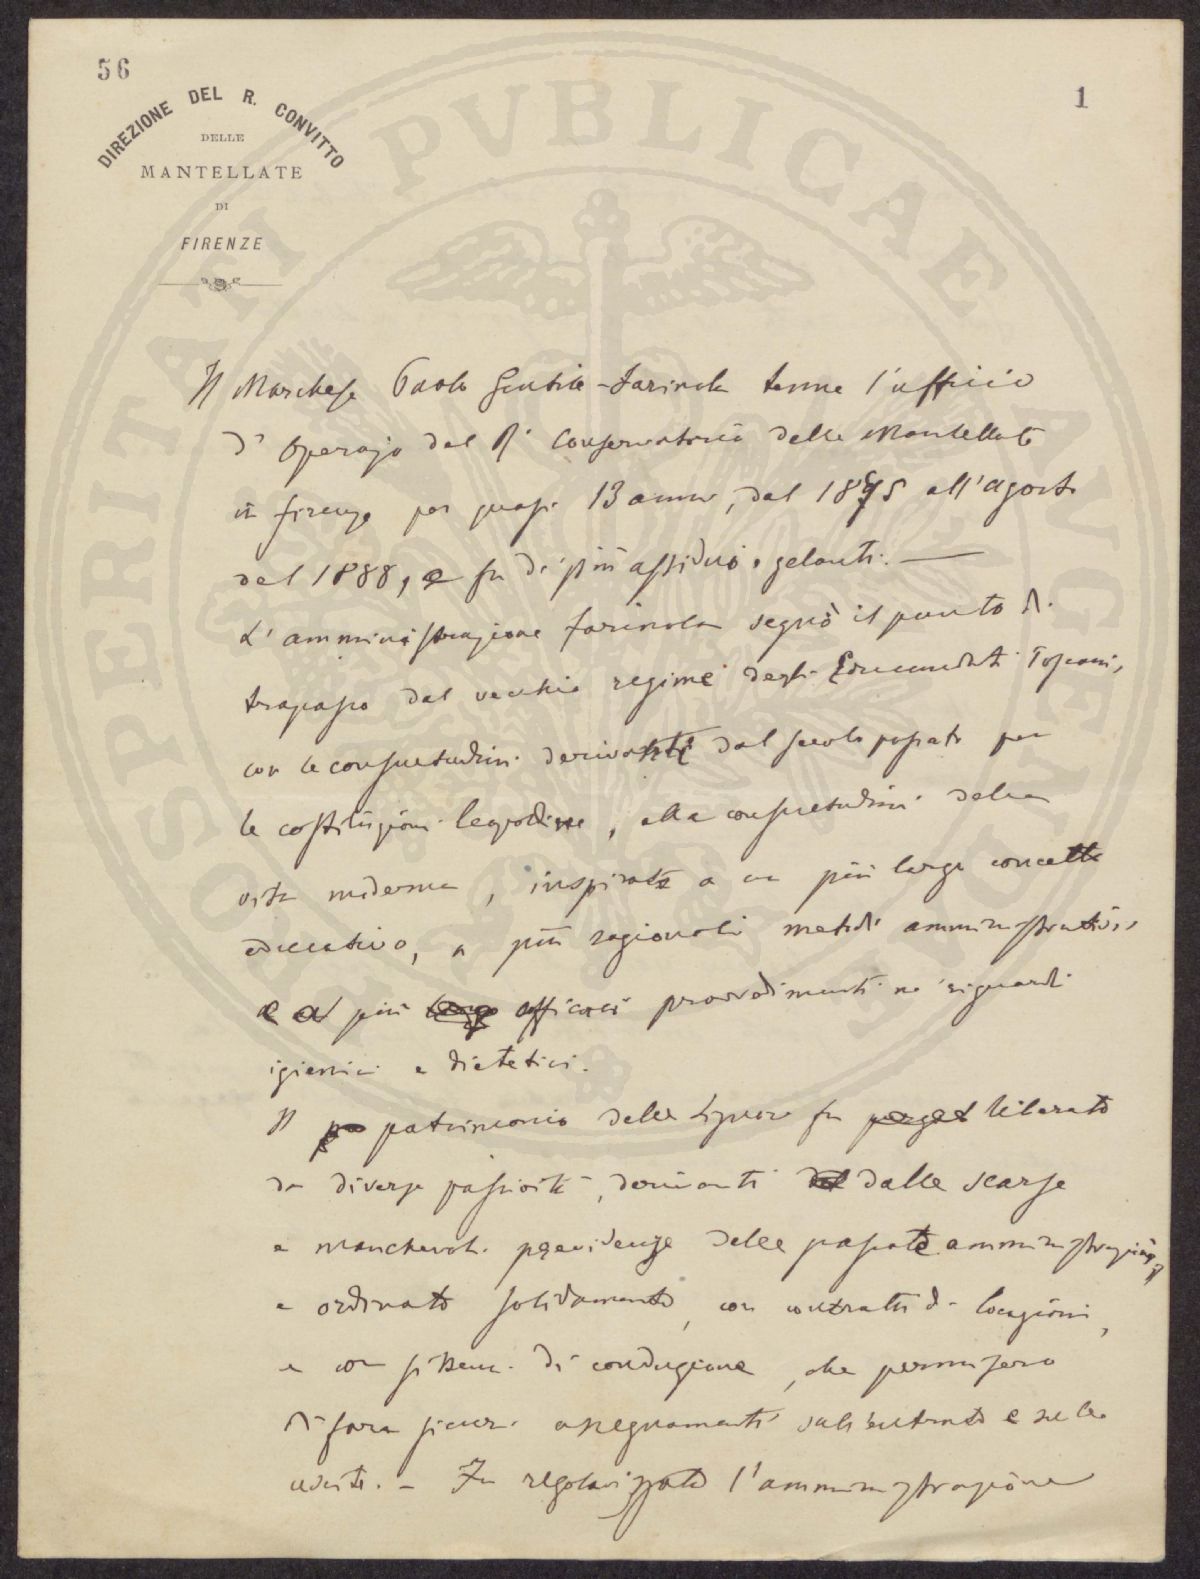 56
1
DIREZIONE DEL R. CONVITTO
DELLE
MANTELLATE
DI
FIRENZE
PROSPERITATI PVBLICAE AVGENDAE
Il Marchese Paolo Gentile-Farinola tenne l'ufficio
d'Operajo del R. Conservatorio delle Mantellate
in Firenze per quasi 13 anni, dal 1875 all'agosto
del 1888, e fu de' più assidui e zelanti. —
L'amministrazione Farinola segnò il punto di
trapasso dal vecchio regime degli Educandati Toscani,
con le consuetudini derivanti dal secolo passato per
le costituzioni leopoldine, alle consuetudini della
vita moderna, inspirate a un più largo concetto
educativo, a più razionali metodi amministrativi,
e a più efficaci provvedimenti ne' riguardi
igienici e dietetici.
Il patrimonio delle Signore fu liberato
da diverse passività, derivanti dalle scarse
e manchevoli previdenze delle passate amministrazioni,
e ordinato solidamente, con contratti di locazioni,
e con sistemi di conduzione, che permisero
di fare sicuri assegnamenti sull'entrate e sulle
uscite. - Fu regolarizzata l'amministrazione